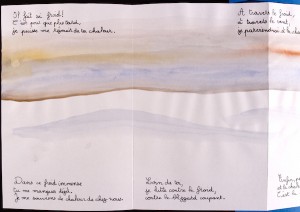 Il fait si froid!
C'est pour que plus tard,
je puisse me réjouir de ta chaleur.
A travers le froid,
à travers le vent,
je parviendrai à
Dans ce froid immense
tu me manques déjà.
je me souviens de chaleur de chez nous.
Loin de toi,
je lutte contre le froid,
contre le blizzard coupant.
Enfin,